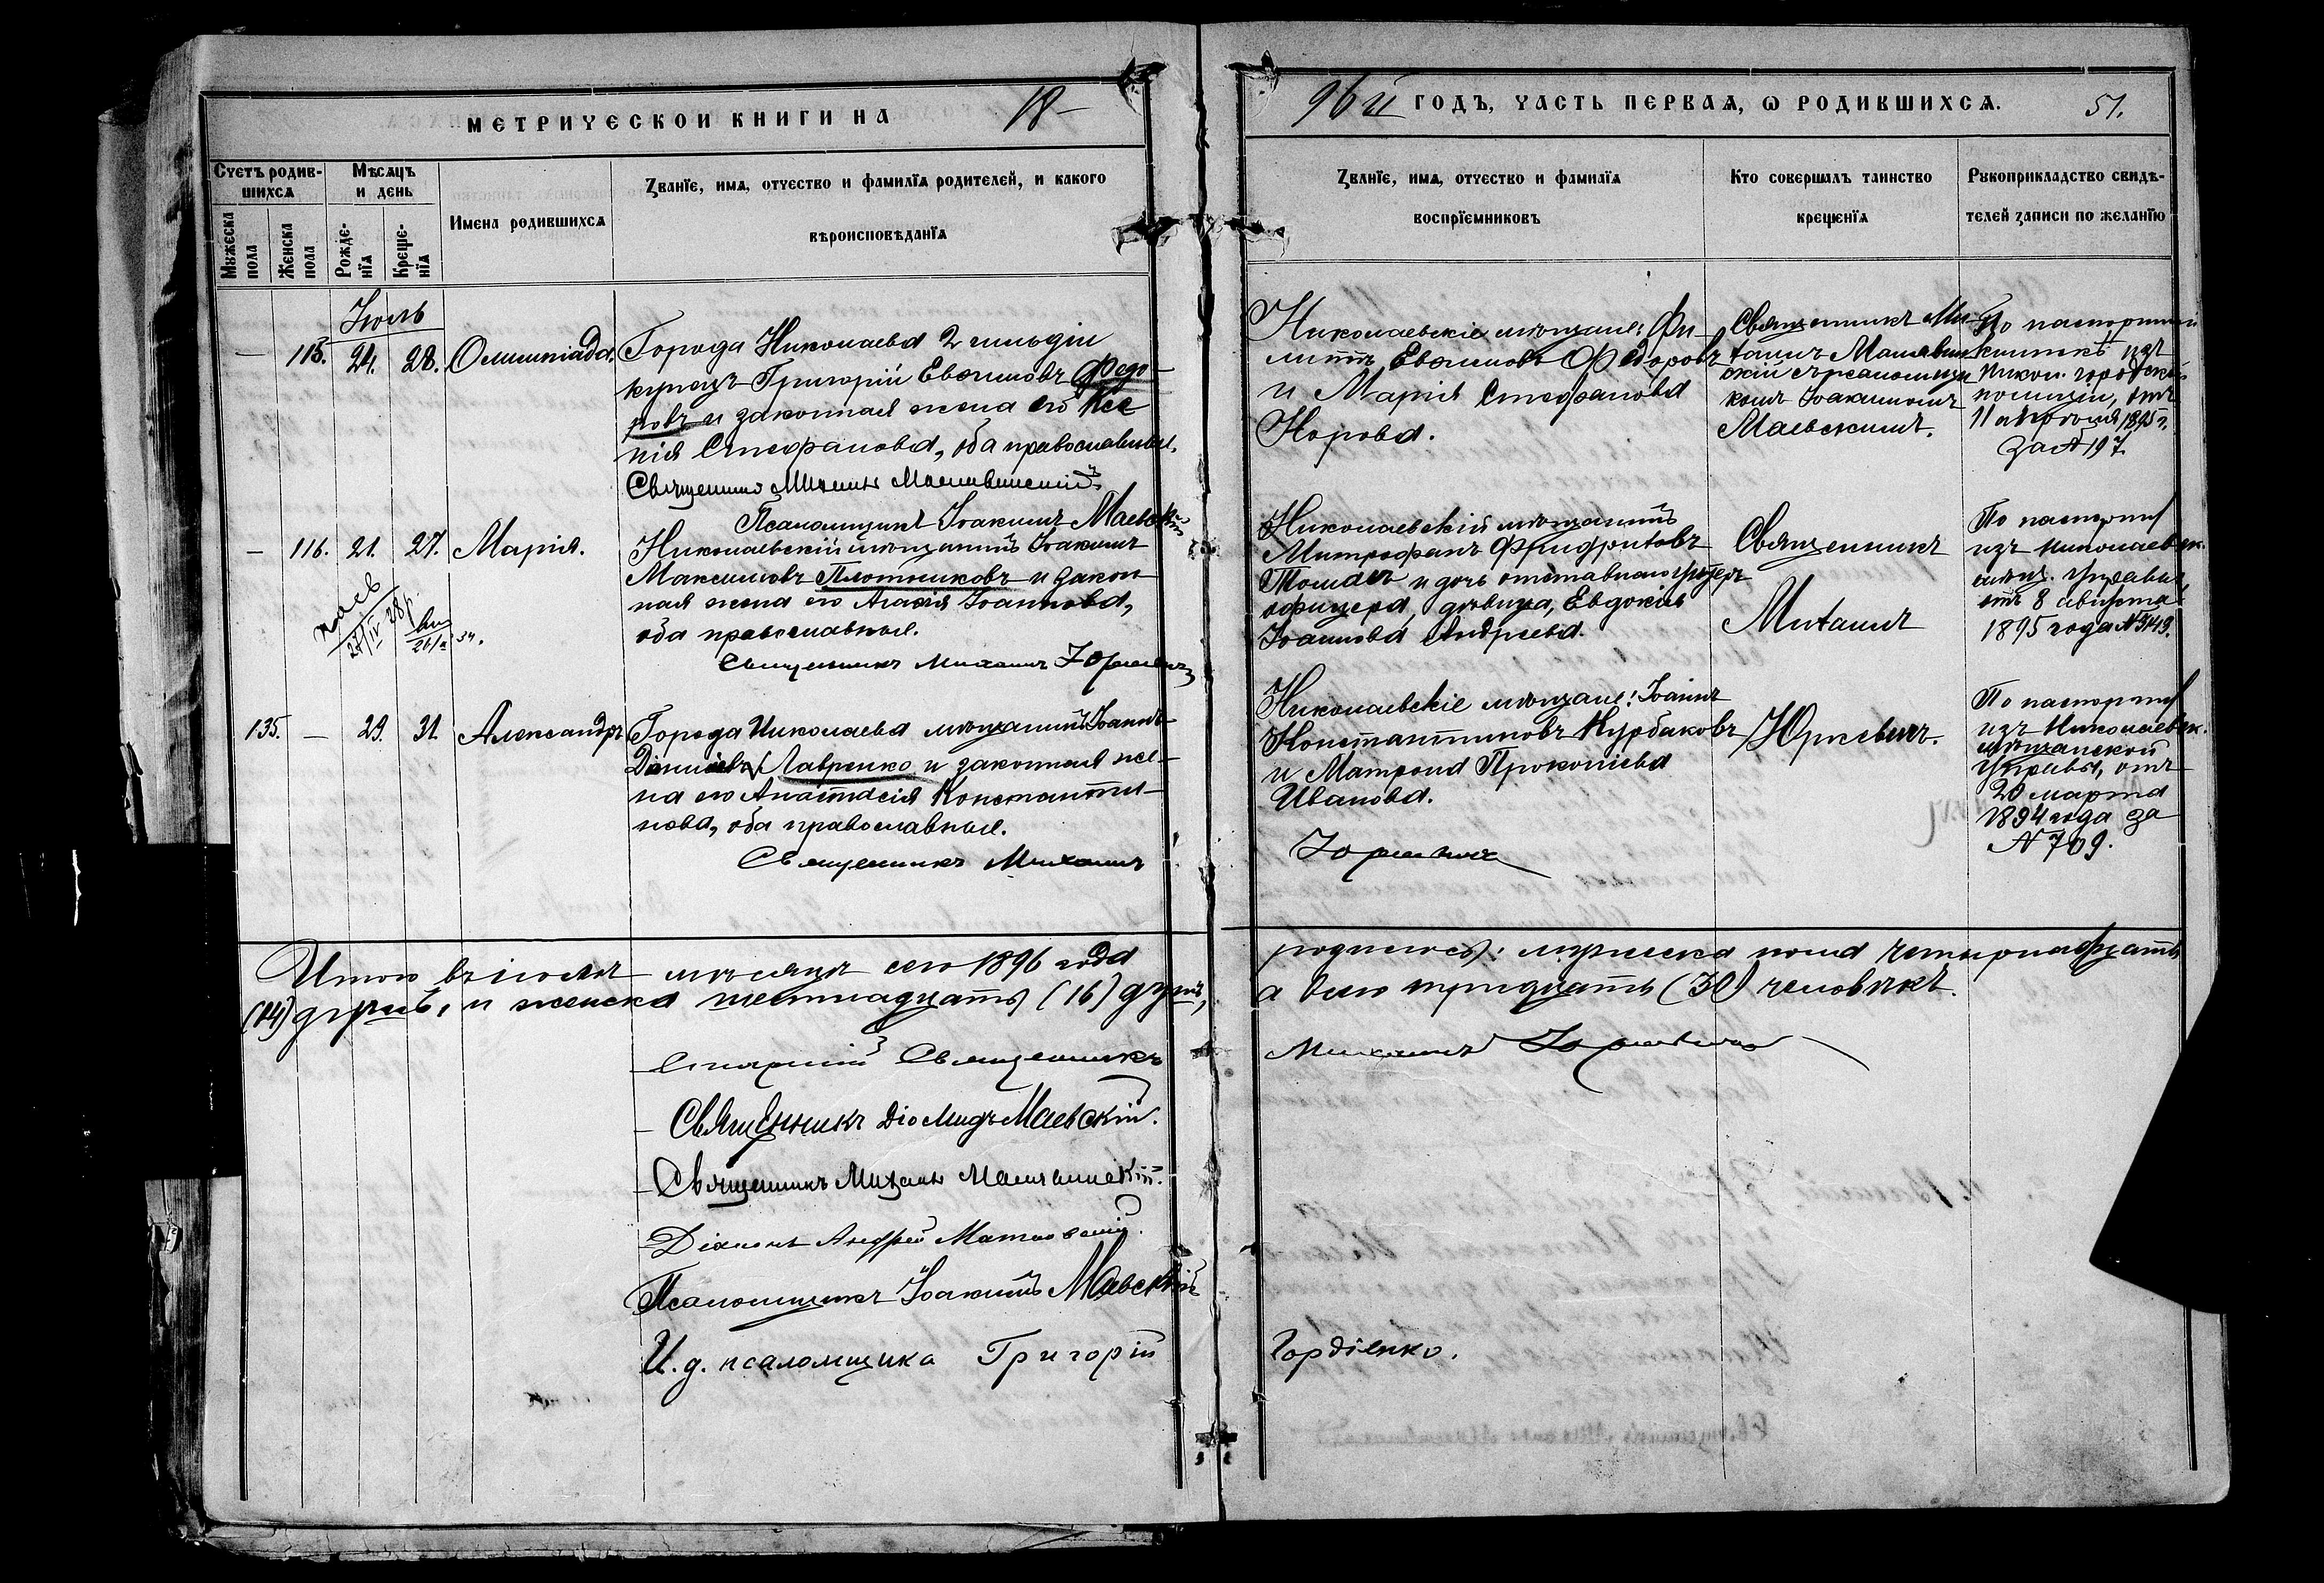 МЕТРИЧЕСКОЙ КНИГИ НА 18
Счетъ родив-
шихся
Мѣсяцъ
и день
Мужеска
пола
Женска
пола
Рожде-
нія
Креще-
нія
Имена родившихся
Званіе, имя, отчество и фамилія родителей, и какого
вѣроисповѣданія
Іюль
— 115. 24. 28. Олимпіада.
Города Николаева 2 гильдіи
купецъ Григорій Евѳимовъ Федо-
ровъ и законная жена его Ксе-
нія Стефанова, оба православные.
Священникъ Михаилъ
Псаломщикъ Іоакимъ Маевскій
— 116. 21. 27. Марія.
Николаевскій мѣщанинъ Іоакимъ
Максимовъ Плотниковъ и закон-
ная жена его Агафія Іоаннова,
оба православные.
Священникъ Михаилъ Юркевичъ
135. — 29. 31. Александръ
Города Николаева мѣщанинъ Іоаннъ
Лавренко и законная же-
на его Анастасія Константи-
нова, оба православные.
Священникъ Михаилъ
Итого въ іюлѣ мѣсяцѣ сего 1896 года
(14) душъ, и женска шестнадцать (16) душъ,
Старшій Священникъ
Священникъ Діомидъ Маевскій.
Священникъ Михаилъ
Діаконъ Андрей
Псаломщикъ Іоакимъ Маевскій
И. д. псаломщика Григорій
96й ГОДЪ, ЧАСТЬ ПЕРВАЯ, Ѡ РОДИВШИХСЯ. 51.
Званіе, имя, отчество и фамилія
воспріемниковъ
Кто совершалъ таинство
крещенія
Рукоприкладство свидѣ-
телей записи по желанію
Николаевскіе мѣщане: Фи-
липпъ Евѳимовъ Федоровъ
и Марія Стефанова
Норова.
Священникъ Ми-
хаилъ
скій съ псаломщи-
комъ Іоакимомъ
Маевскимъ.
По паспортной
книжкѣ изъ
Никол. городской
полиціи, отъ
11 1895 г.
за № 197.
Николаевскій мѣщанинъ
Митрофанъ
и дочь отставного унтеръ
офицера, дѣвица, Евдокія
Іоаннова Андреева.
Священникъ
Михаилъ
По паспорту
изъ Николаевск.
мѣщ. управы,
отъ 8 августа
1895 года
Николаевскіе мѣщане: Іоаннъ
Константиновъ Курбаковъ
и Матрона Прокопіева
Иванова.
Юркевичъ
Юркевичъ.
По паспорту
изъ Николаевск.
мѣщанской
управы, отъ
20 марта
1894 года за
№ 709.
родилось: мужеска пола четырнадцать
а всего тридцать (30) человѣкъ.
Михаилъ Юркевичъ
Гордіенко.